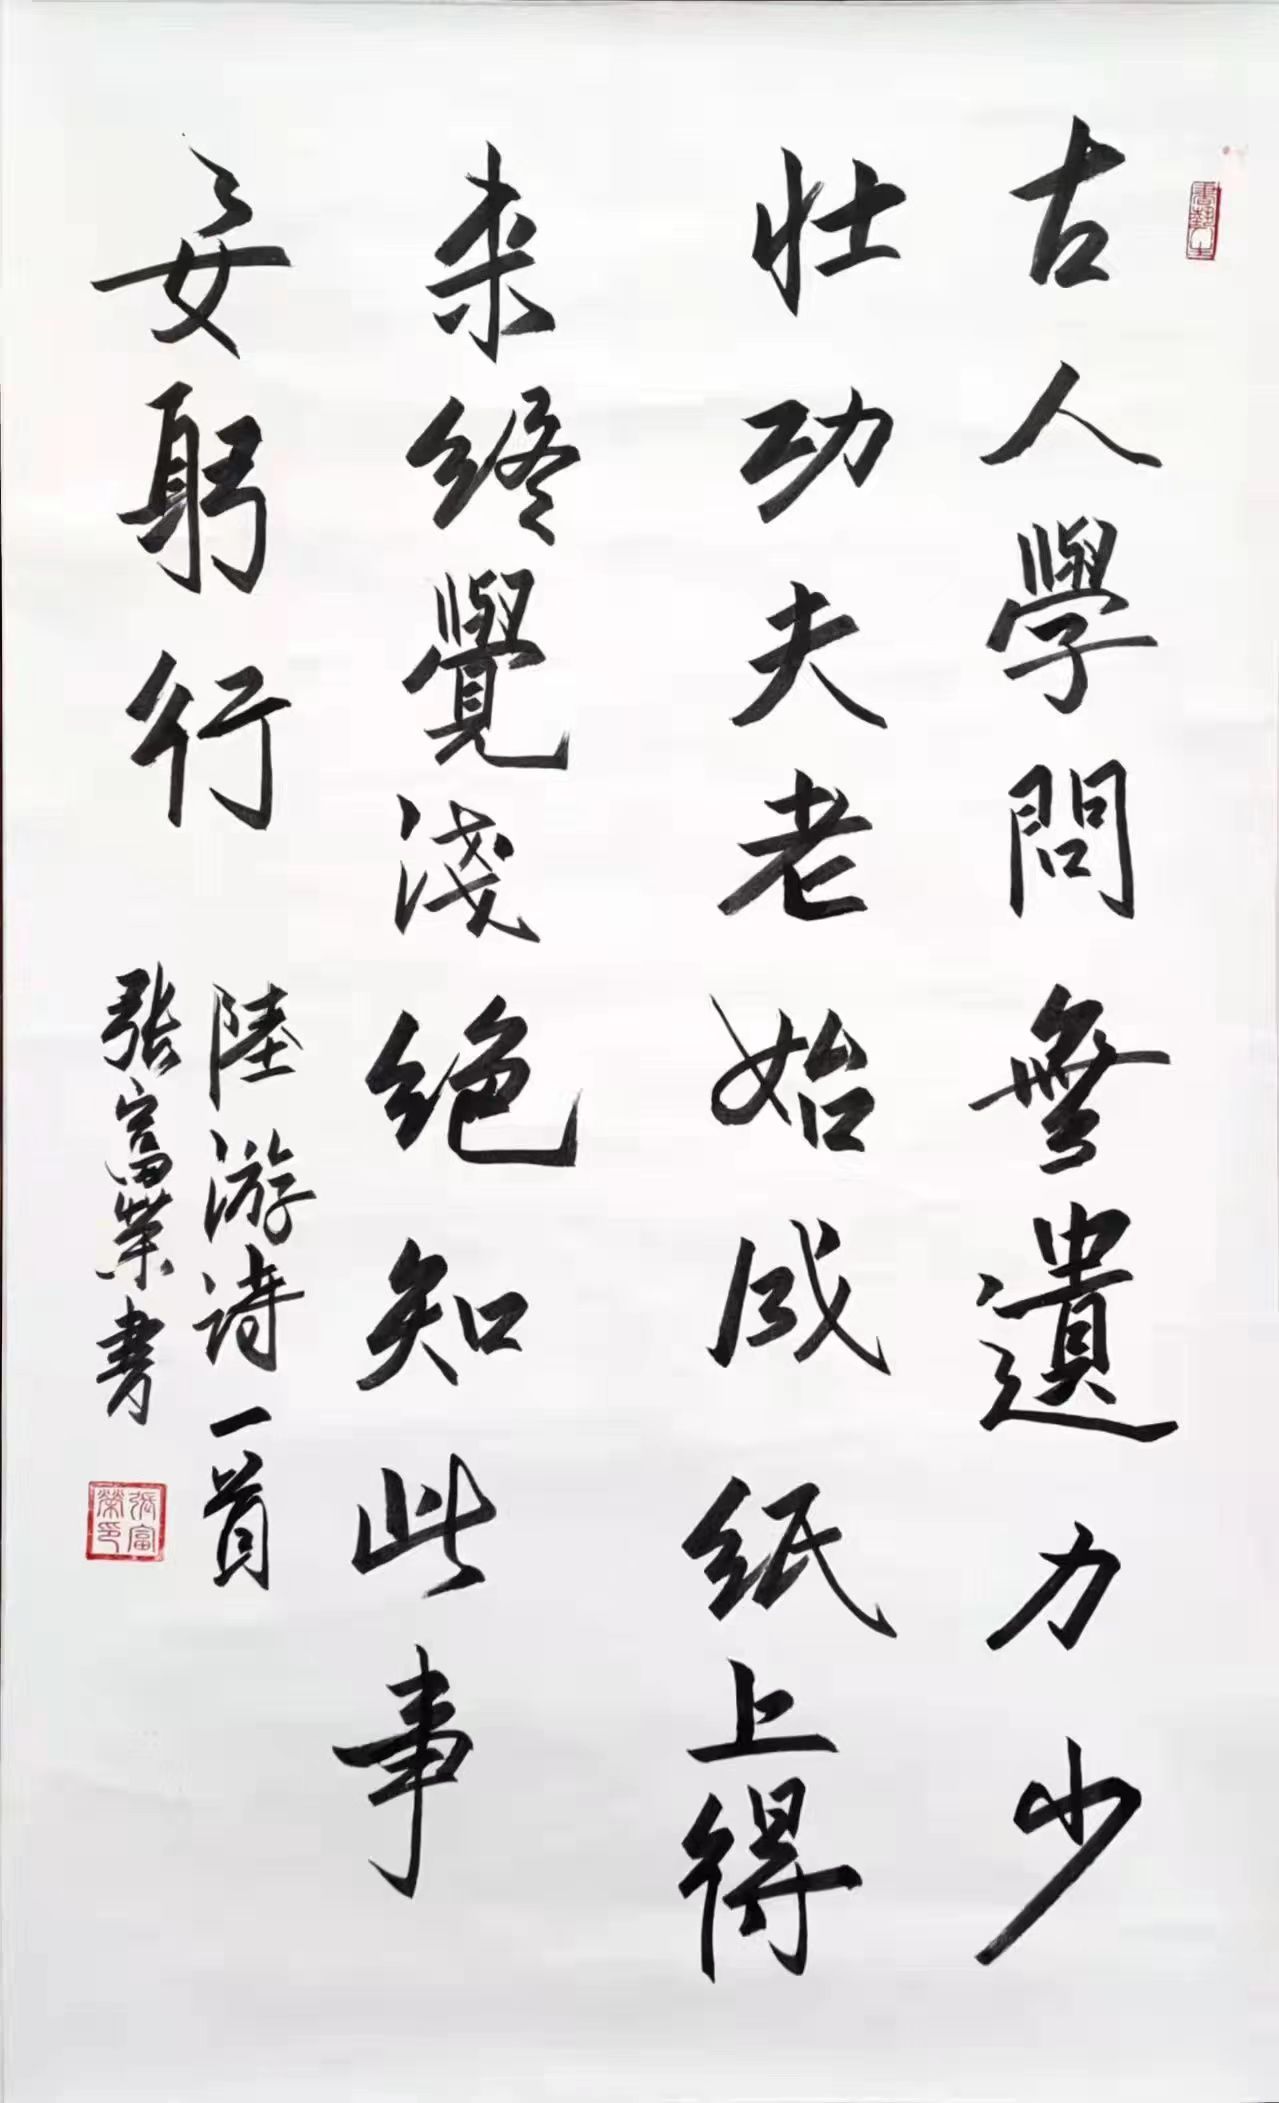 古人學問無遺力少
壮功夫老始成紙上得
来終覺淺絶知此事
要躬行
陸游詩一首
張富榮書
張富榮印